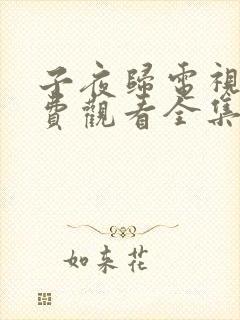 子夜歸電視
費觀看全集
如來花